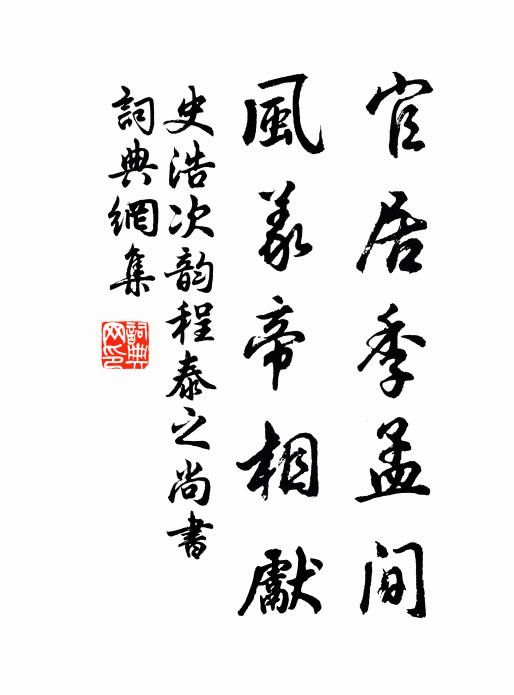 官居季孟间
風義帝相獻
史浩次韵程泰之尚書
詞典網集
詞典網印